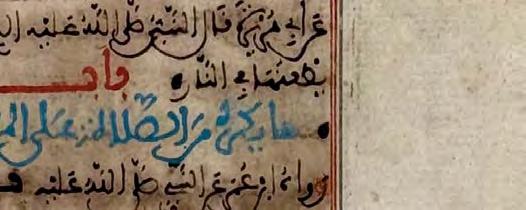 عن أبي هريرة قال النبي صلى الله عليه
يطعنها في النار باب
ما يكره من الصلاة على
رواه ابن عمر عن النبي صلى الله عليه